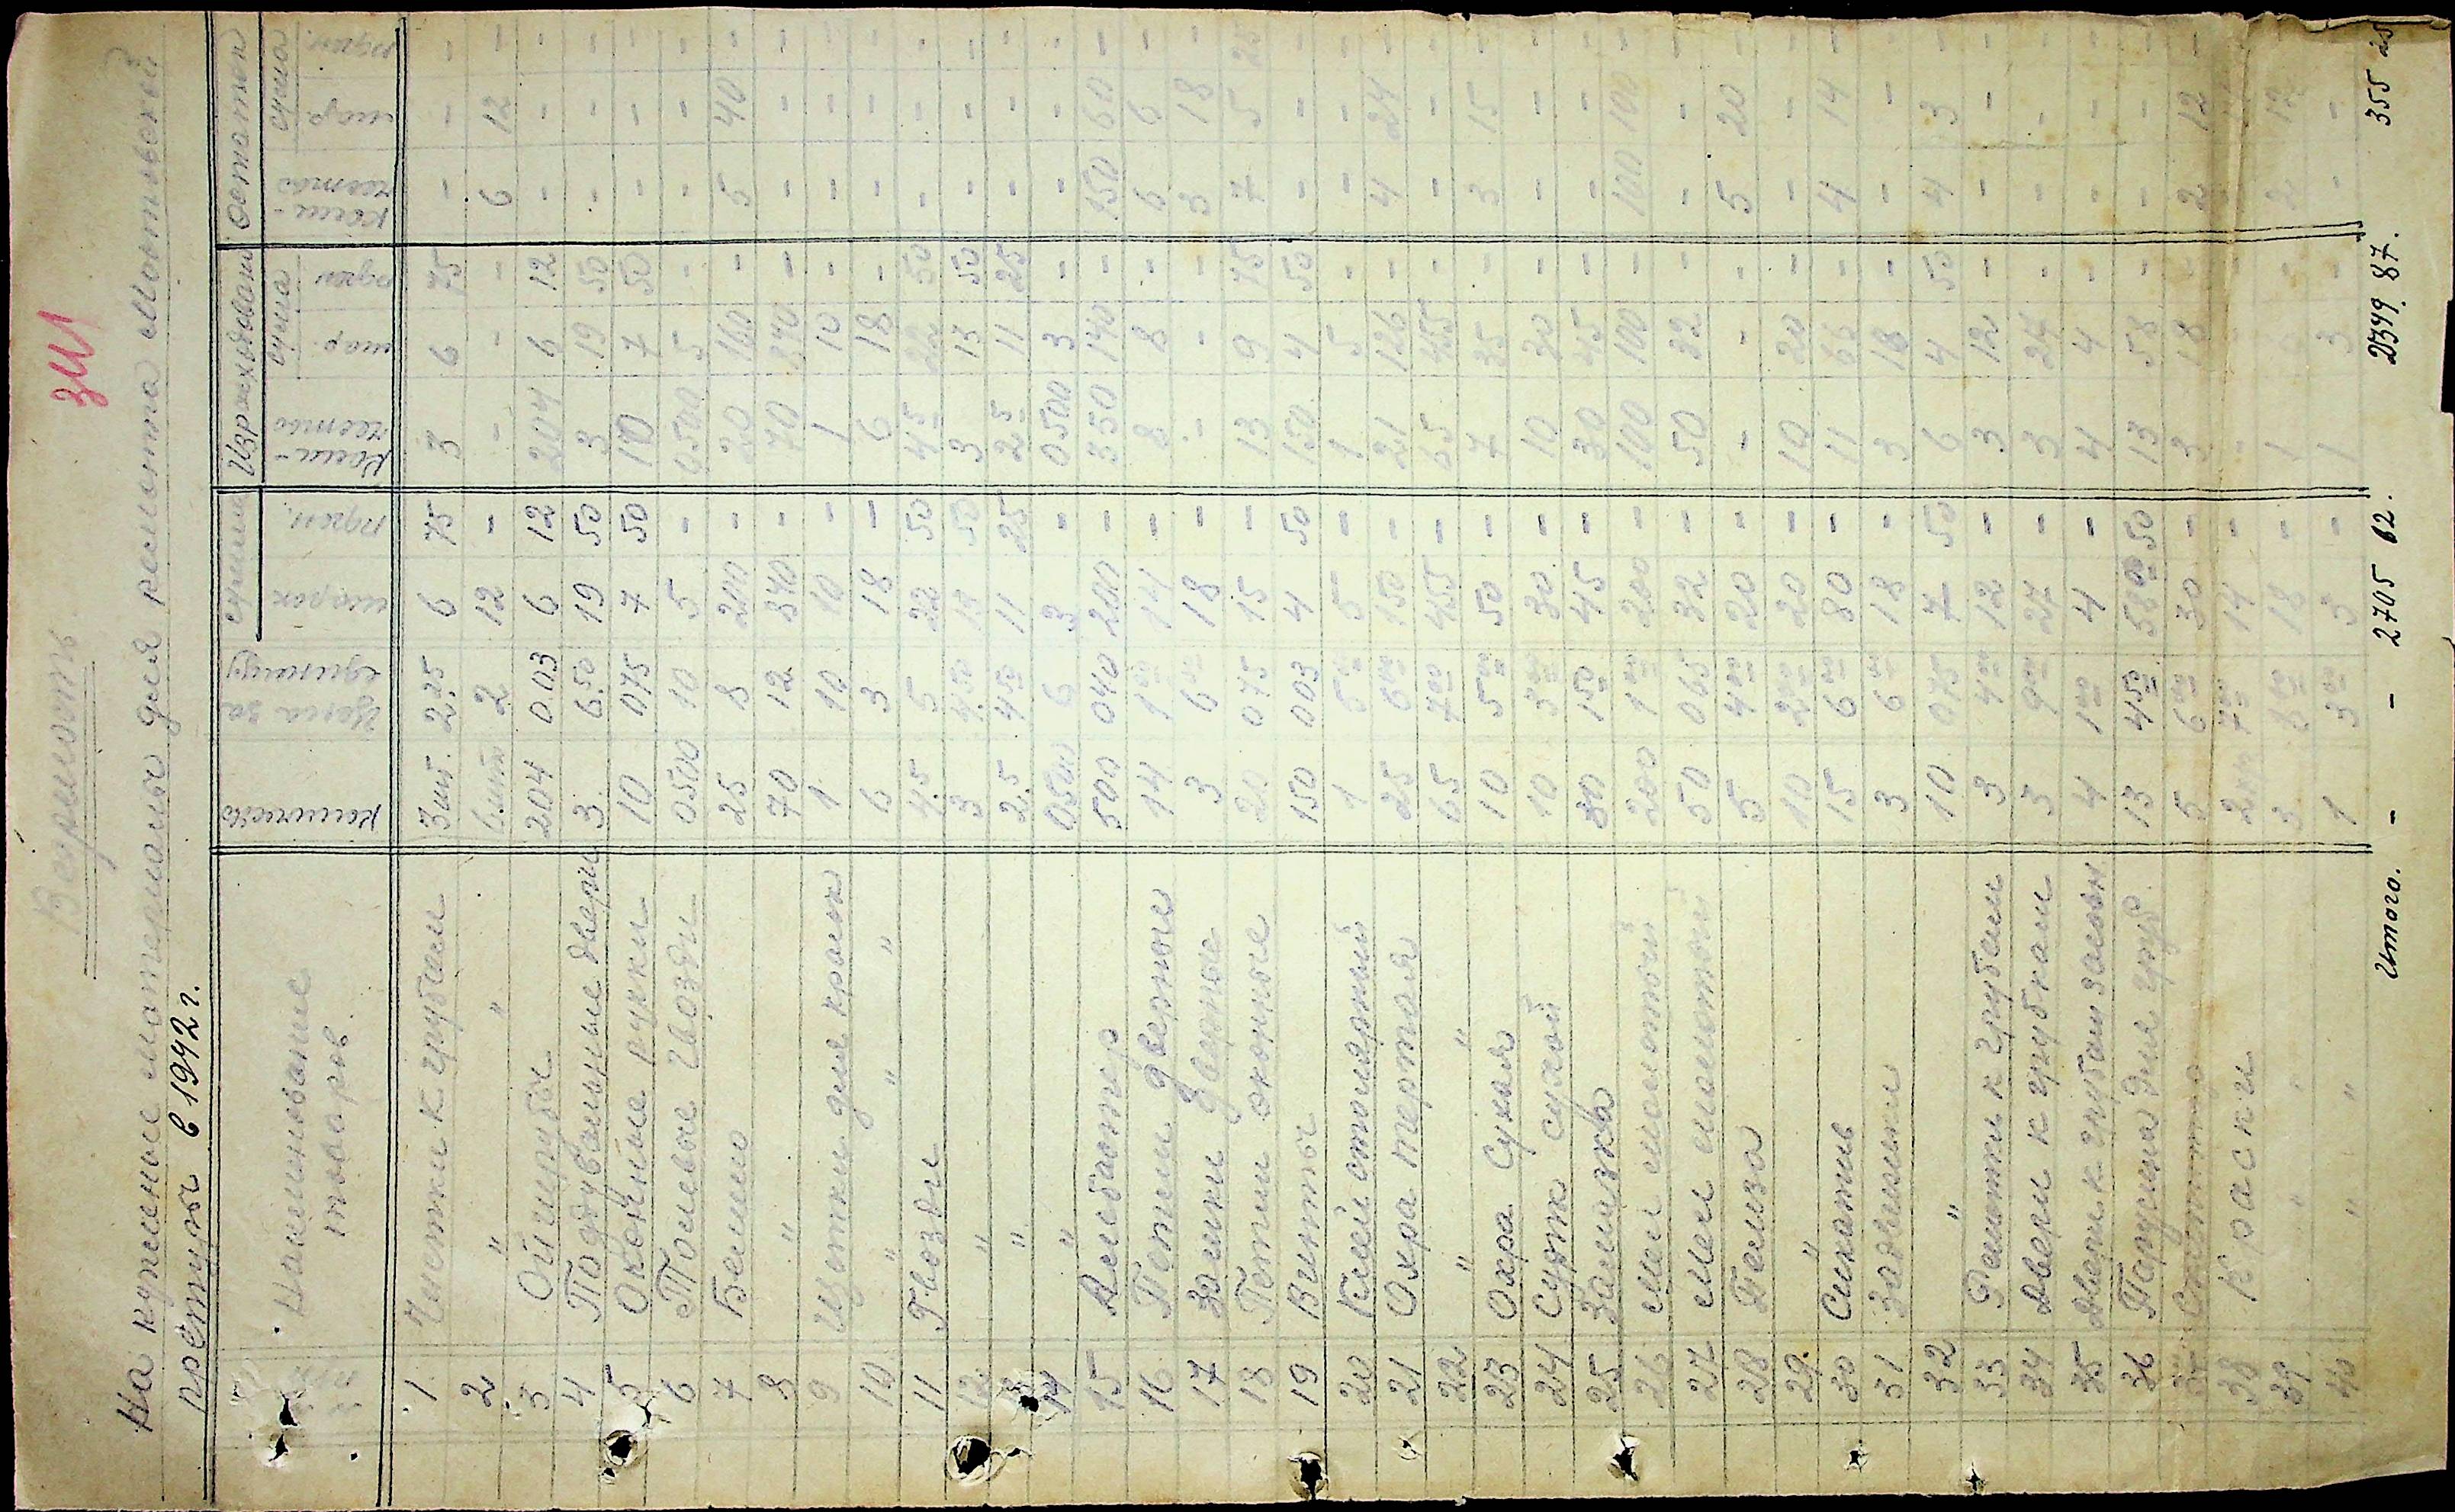 Ведомость
На купленые материалы для ремонта Мостыской
претуры в 1942 г.
Наименование товаров | количество | Цена за единицу | сумма марок | пфен. | Израсходовано коли-чество | сумма мар. | пфен | Остаток коли-чество | сумма мар. | пфен.
1 Чистки к грубам 3 шт. 2.25 6 75 3 6 75 - - -
2 " " 6 шт 2 12 - - - - 6 12 -
3 204 0.03 6 12 204 6 12 - - -
4 Поддувальные двери 3 6.50 19 50 3 19 50 - - -
5 Оконные ручки 10 0.75 7 50 10 7 50 - - -
6 Толевые гвозди 0.500 10 5 - 0.500 5 - - - -
7 Белило 25 8 200 - 20 160 - 5 40 -
8 " 70 12 840 - 70 840 - - - -
9 Щетки для красок 1 10 10 - 1 10 - - - -
10 " " " 6 3 18 - 6 18 - - - -
11 Гвозди 4.5 5 22 50 4.5 22 50 - - -
12 " 3 4.50 13 50 3 13 50 - - -
13 " 2.5 4.50 11 25 2.5 11 25 - - -
14 " 0.500 6 3 - 0.500 3 - - - -
15 Алебастер 500 0.40 200 - 350 140 - 150 60 -
16 Петли дверные 14 1.00 14 - 8 8 - 6 6 -
17 Замки дверные 3 6.00 18 - - - - 3 18 -
18 Петли оконные 20 0.75 15 - 13 9 75 7 5 25
19 Винты 150 0.03 4 50 150 4 50 - - -
20 Клей столярный 1 5.00 5 - 1 5 - - - -
21 Охра тертая 25 6.00 150 - 21 126 - 4 24 -
22 " " 65 7.00 455 - 65 455 - - - -
23 Охра сухая 10 5.00 50 - 7 35 - 3 15 -
24 Сурик сухой 10 3.00 30 - 10 30 - - - -
25 Замазка 30 1.50 45 - 30 45 - - - -
26 Мел молотый 200 1.00 200 - 100 100 - 100 100 -
27 Мел молотый 50 0.65 32 - 50 32 - - - -
28 5 4.00 20 - - - - 5 20 -
29 " 10 2.00 20 - 10 20 - - - -
30 Сикатив 15 6.00 80 - 11 66 - 4 14 -
31 Задвижки 3 6.00 18 - 3 18 - - - -
32 " 10 0.75 7 50 6 4 50 4 3 -
33 Решотки к грубам 3 4.00 12 - 3 12 - - - -
34 Двери к грубкам 3 9.00 27 - 3 27 - - - -
35 Двери к грубам 4 1.00 4 - 4 4 - - - -
36 для груб 13 4.50 58.00 50 13 58 - - - -
37 5 6.00 30 - 3 18 - 2 12 -
38 Краски 2 7.00 14 -
39 " " 3 6.00 18 - 1 2 12 -
40 " " 1 3.00 3 - 1 3 - - - -
Итого. - - 2705 62. 2349. 87. 355 25